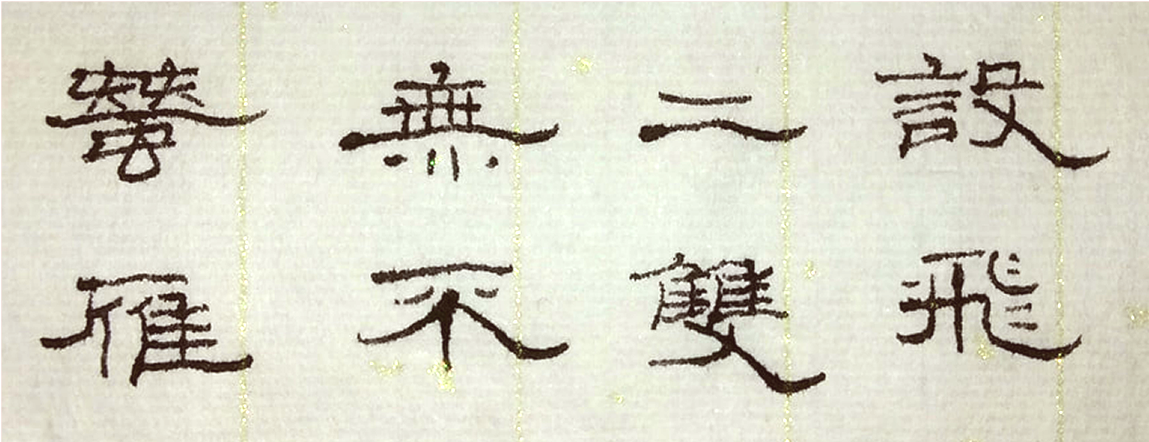 無二設
雁不雙飛